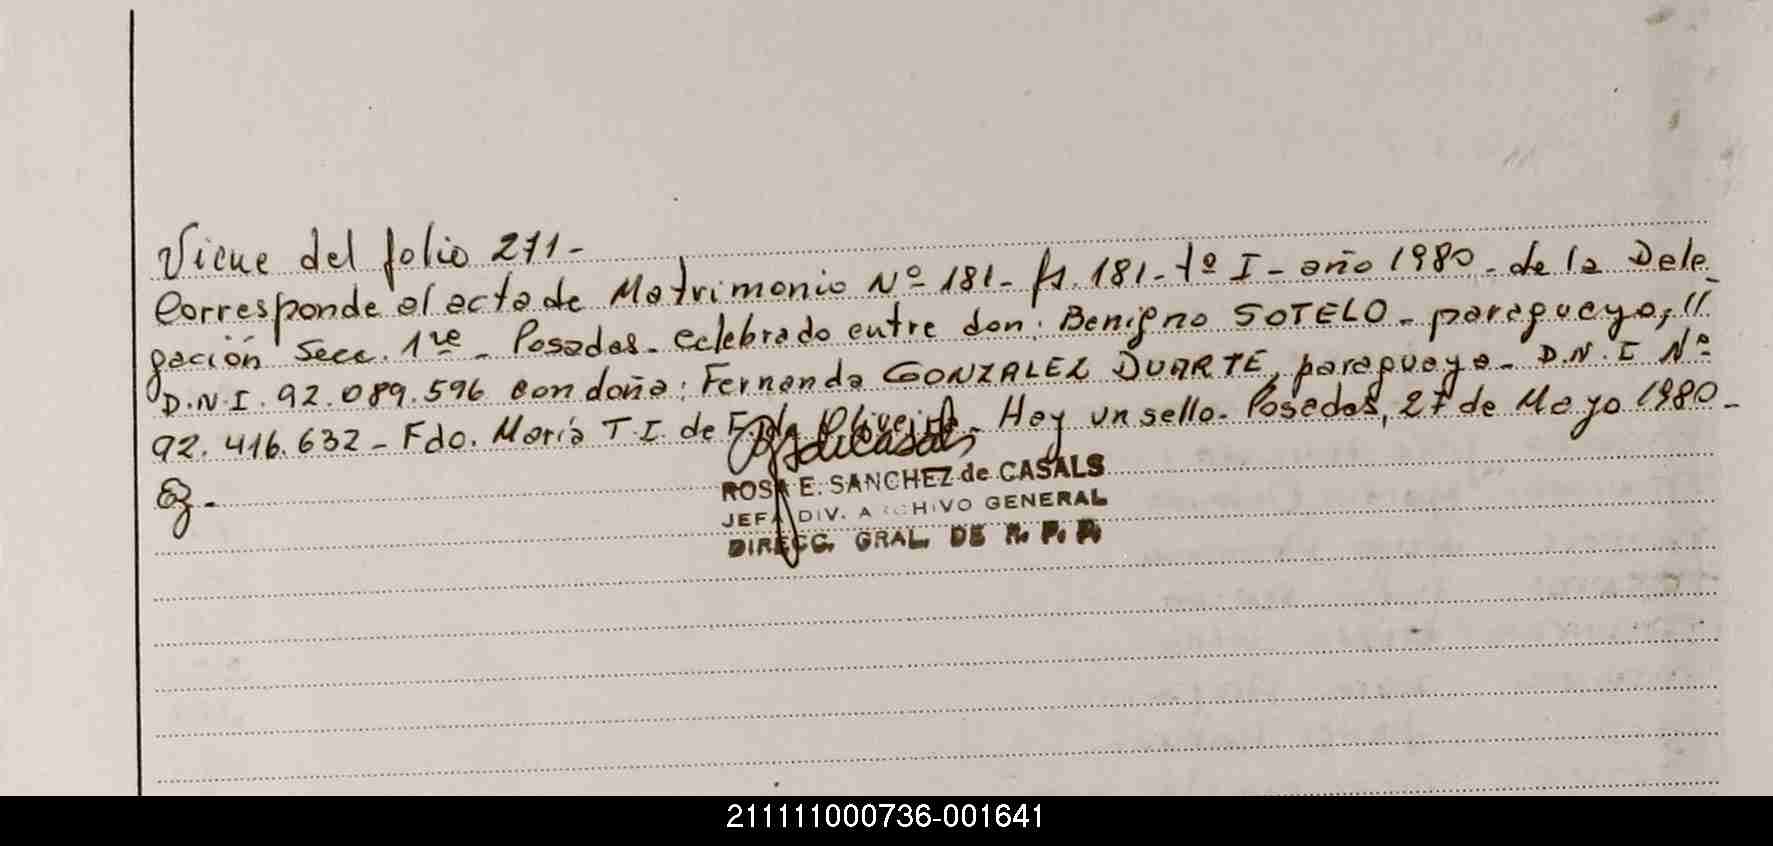 Viene del folio 271-
Corresponde al acta de Matrimonio Nº 181- fs. 181- tº I- año 1980- de la Dele_
gación Secc. 1ra_ Posadas- celebrado entre don: Benigno SOTELO- paraguayo, //
D.N.I. 92.089.596 con doña: Fernanda GONZALEZ DUARTE, paraguaya- D.N.I Nº
92.416.632- Fdo. María T.I. de Oliveira- Hay un sello- Posadas, 27 de Mayo 1980-
ROSA E. SANCHEZ de CASALS
JEFA DIV. ARCHIVO GENERAL
DIRECC. GRAL. DE R. P. P.
211111000736-001641